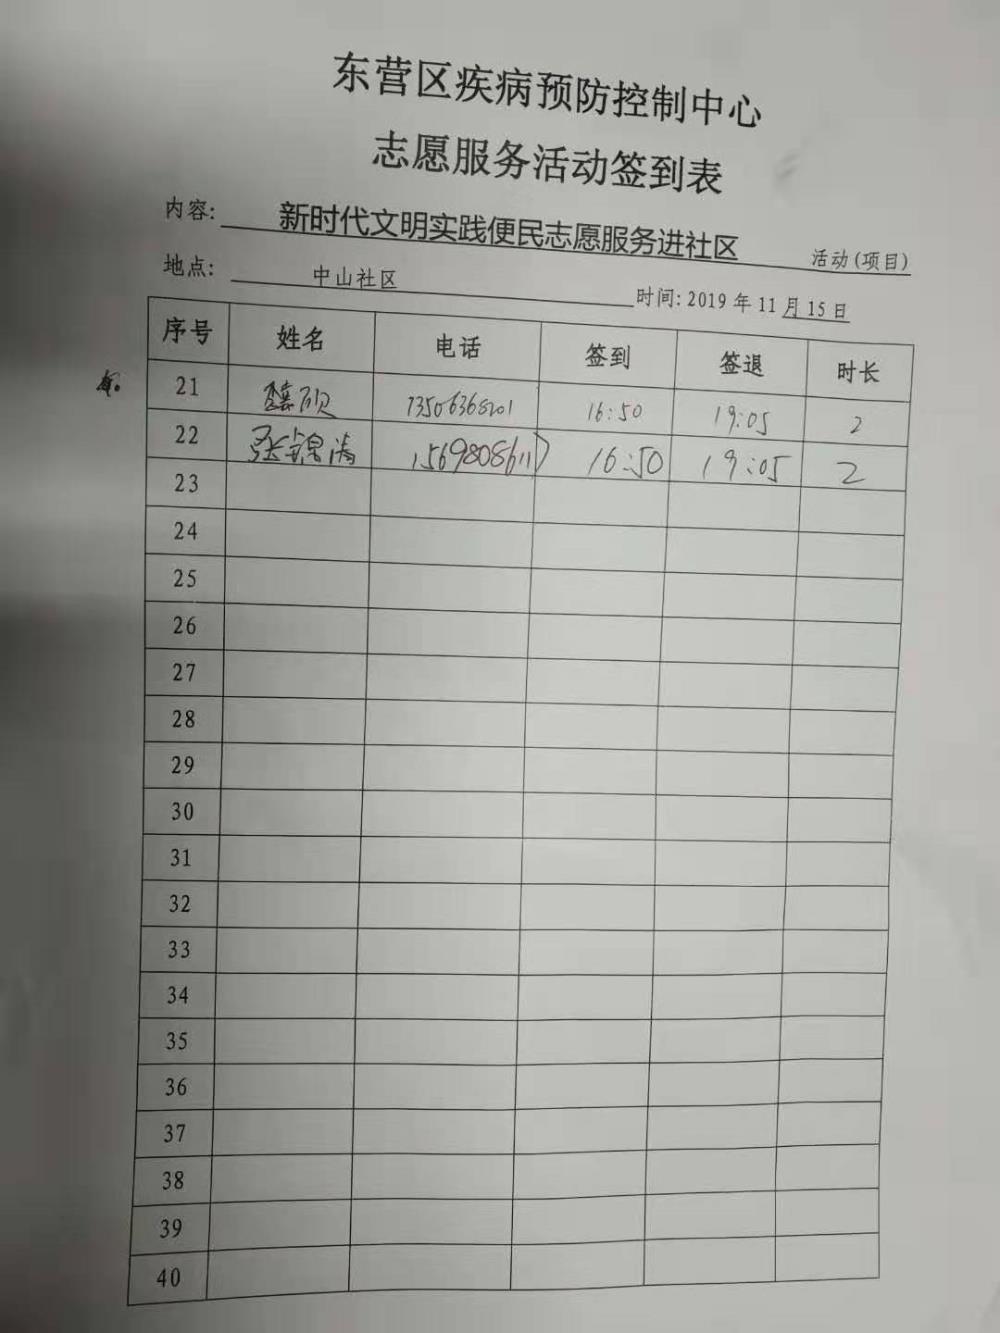 东营区疾病预防控制中心
志愿服务活动签到表
内容: 新时代文明实践便民志愿服务进社区 活动(项目)
地点: 中山社区 时间: 2019 年 11 月 15 日
序号 姓名 电话 签到 签退 时长
21 16:50 19:05 2
22 张锦涛 16:50 19:05 2
23
24
25
26
27
28
29
30
31
32
33
34
35
36
37
38
39
40